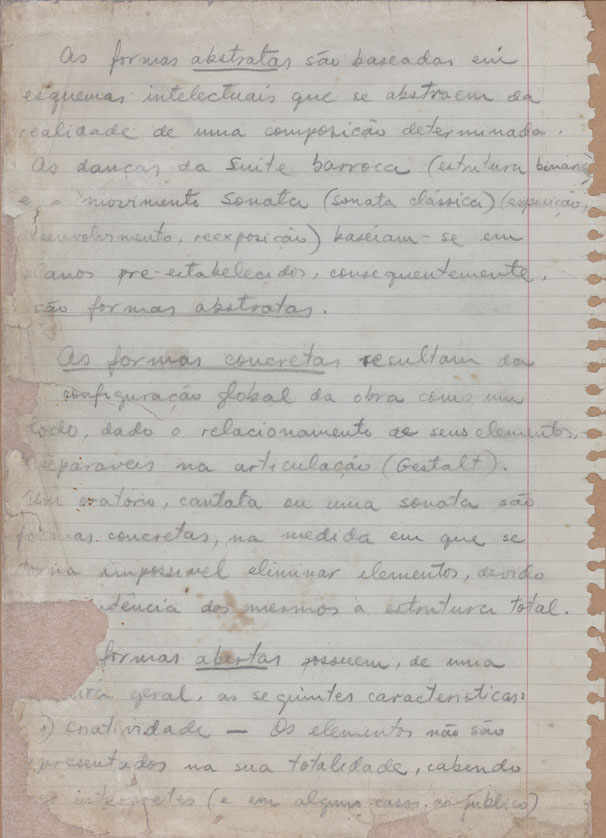 As formas abstratas são baseadas em
esquemas intelectuais que se abstraem da
ealidade de uma composição determinada.
As danças da Suite barroca (estrutura binária)
e o movimento Sonata (sonata clássica) (exposição,
esenvolvimento, reexposição) baseiam-se em
lanos pre-estabelecidos, consequentemente,
são formas abstratas.
As formas concretas resultam da
configuração global da obra como um
todo, dado o relacionamento de seus elementos,
separaveis na articulação (Gestalt).
Um oratório, cantata ou uma sonata são
formas concretas, na medida em que se
torna impossivel eliminar elementos, devido
dência dos mesmos à estrutura total.
formas abertas possuem, de uma
geral, as seguintes caracteristicas:
1) criatividade — Os elementos não são
apresentados na sua totalidade, cabendo
interpretes (e em alguns casos, ao público)